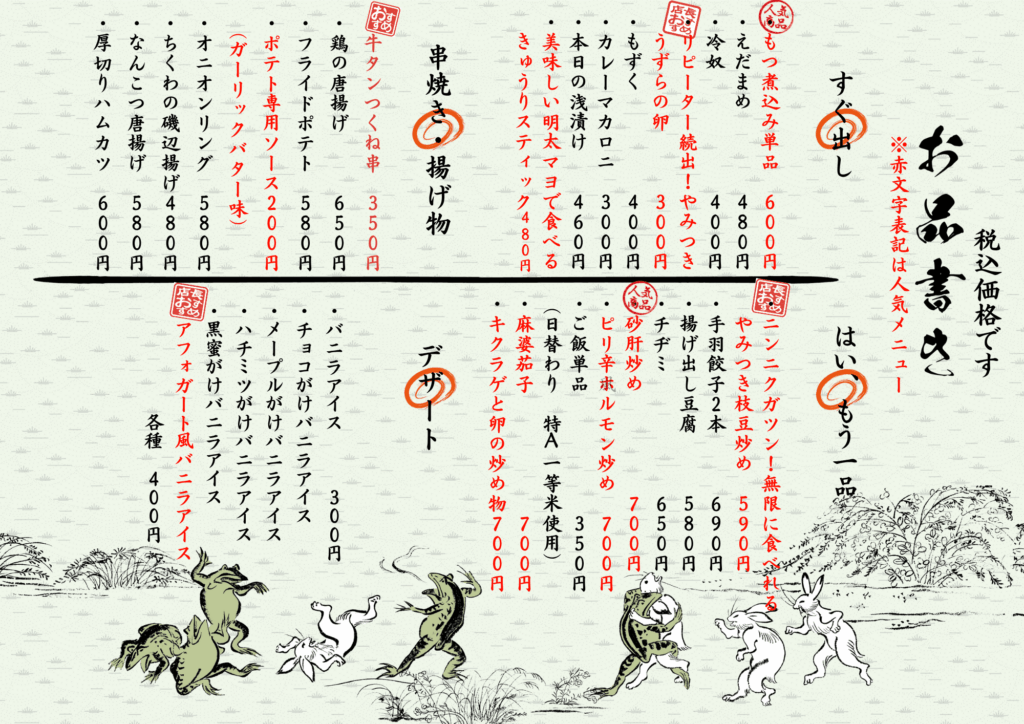 お品書き
税込価格です
※赤文字表記は人気メニュー
すぐ出し
人気商品
・もつ煮込み単品 600円
・えだまめ 480円
・冷奴 400円
店長おすすめ
・リピーター続出！やみつき
うずらの卵 300円
・もずく 400円
・カレーマカロニ 300円
・本日の浅漬け 460円
・美味しい明太マヨで食べる
きゅうりスティック480円
串焼き・揚げ物
おすすめ
牛タンつくね串 350円
・鶏の唐揚げ 650円
・フライドポテト 580円
・ポテト専用ソース200円
（ガーリックバター味）
・オニオンリング 580円
・ちくわの磯辺揚げ480円
・なんこつ唐揚げ 580円
・厚切りハムカツ 600円
はい、もう一品
店長おすすめ
・ニンニクガツン！無限に食べれる
やみつき枝豆炒め 590円
・手羽餃子2本 690円
・揚げ出し豆腐 580円
・チヂミ 650円
人気商品
砂肝炒め 700円
・ピリ辛ホルモン炒め 700円
・ご飯単品 350円
（日替わり 特A一等米使用）
・麻婆茄子 700円
・キクラゲと卵の炒め物700円
デザート
・バニラアイス 300円
・チョコがけバニラアイス
・メープルがけバニラアイス
・ハチミツがけバニラアイス
・黒蜜がけバニラアイス
店長おすすめ
アフォガート風バニラアイス
各種 400円